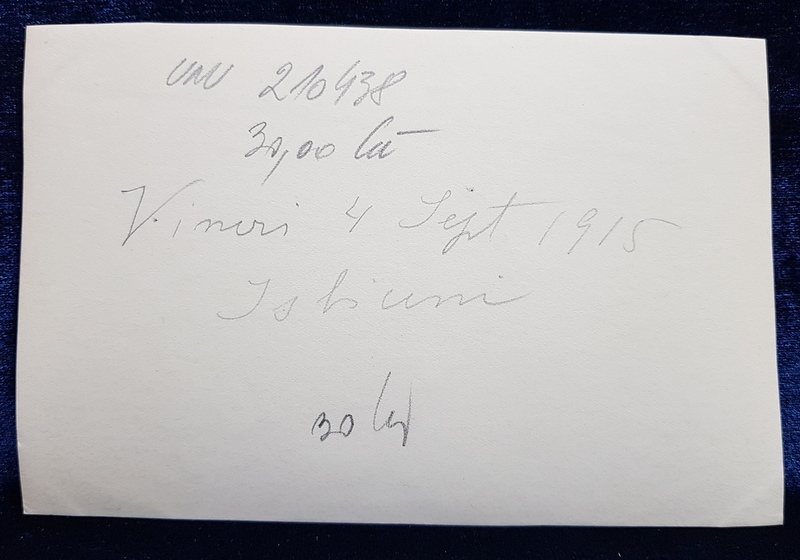 UMV 210438
30,00 lei
Vineri 4 Sept 1915
Isbiceni
30 lei